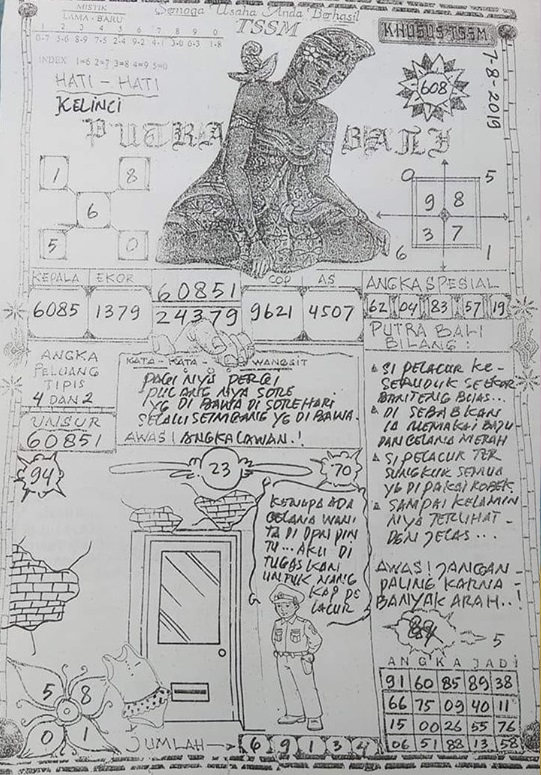 MISTIK
LAMA - BARU
Semoga Usaha Anda Berhasil
TSSM
KHUSUS TSSM
1 2 3 4 5 6 7 8 9 0
INDEX 1=6 2=7 3=8 4=9 5=0
7-8-2019
608
HATI - HATI
KELINCI
PUTRA BALI
1 8
6
5 0
0 5
9 8
3 7
6 1
KEPALA EKOR 60851 COP AS
6085 1379 24379 9621 4507
ANGKA SPESIAL
62 04 83 57 19
PUTRA BALI
BILANG :
ANGKA
PELUANG
TIPIS
4 DAN 2
UNSUR
60851
KATA - KATA - WANGSIT
PAGI NYA PERGI
PULANG NYA SORE
YG DI BAWA DI SORE HARI
SELALU SEIMBANG YG DI BAWA.
AWAS ! ANGKA LAWAN . !
SI PELACUR KE-
SERUDUK SEEKOR
BANTENG BUAS...
DI SEBABKAN
IA MEMAKAI BAJU
DAN CELANA MERAH
SI PELACUR TER
SUNGKUR SEMUA
YG DI PAKAI ROBEK
SAMPAI KELAMIN
NYA TERLIHAT -
DGN JELAS...
AWAS ! JANGAN -
PALING KARNA -
BANYAK ARAH..!
94
23
70
KENAPA ADA
CELANA WANI
TA DI DPN PIN
TU... AKU DI
TUGASKAN
UNTUK NANG
KAP PE
LACUR
5
ANGKA JADI
91 60 85 89 38
66 75 09 40 11
15 00 26 55 76
06 51 88 13 58
5 8
0 1
JUMLAH → 6 9 1 3 4